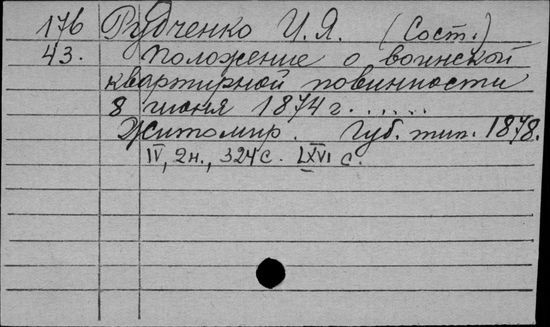 176 Рудченко И. Я. (Сост.)
43. Положение о воинской
квартирной повинности
8 июня 1874 г. . . . . .
Житомир. Губ. тип. 1878.
IV, 2н., 324 с. LXVI с.